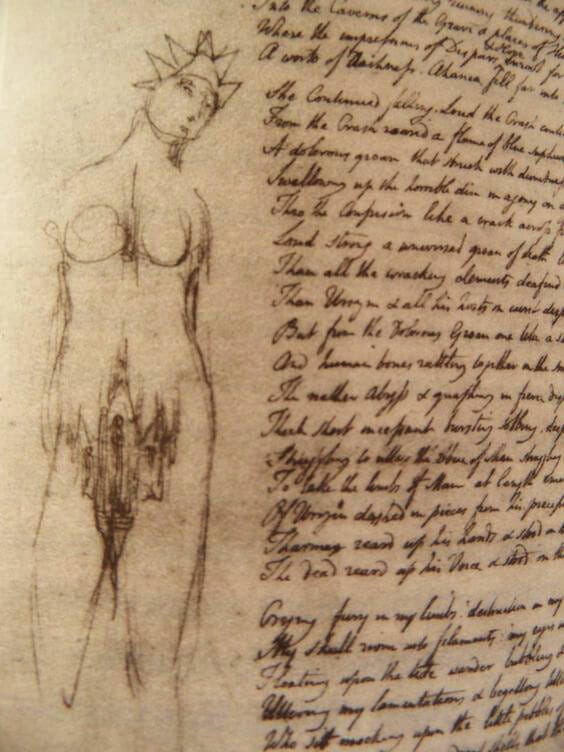 Into the Caverns of the Grave & places of
Where the impressions of Despair & Hope enroot for
A world of Darkness. Ahania fell far into
She Continued falling. Loud the Crash
From the Crash roared a flame of blue
A dolorous groan that struck with
Swallowing up the horrible din in agony on
Thro the Confusion like a crack across
Loud strong a universal groan of death
Than all the wracking elements deafend
Than Urizen & all his hosts in curst
But from the Dolorous Groan one like a
And human bones rattling together in the
The nether Abyss & gnashing in fierce
Thick short incessant bursting sobbing.
Struggling to utter the voice of Man
To take the limbs of Man at length
Of Urizen dashed in pieces from his
Tharmas reard up his hands & stood on
The dead reard up his Voice & stood on
Crying fury in my limbs. destruction in my
My skull riven into filaments. my eyes
Floating upon the tide wander bubbling &
Uttering my lamentations & begetting
Who sit mocking upon the little pebbles of
that the